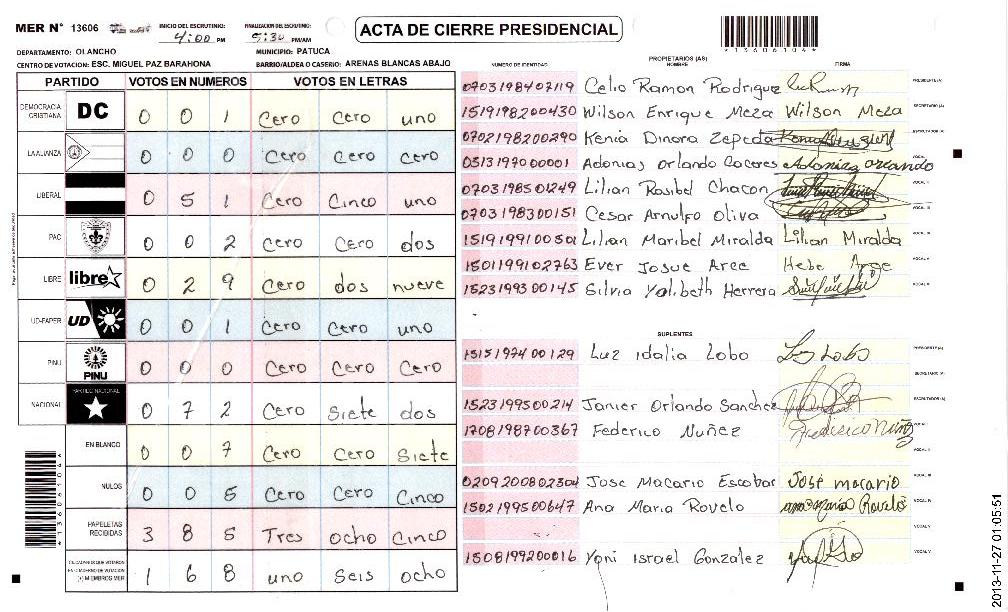 MER N° 13606 INICIO DEL ESCRUTINIO: 4:00 PM FINALIZACION DEL ESCRUTINIO: 5:30 PM/AM
ACTA DE CIERRE PRESIDENCIAL
*13606104*
DEPARTAMENTO: OLANCHO MUNICIPIO: PATUCA
CENTRO DE VOTACION: ESC. MIGUEL PAZ BARAHONA BARRIO/ALDEA O CASERIO: ARENAS BLANCAS ABAJO
PARTIDO VOTOS EN NUMEROS VOTOS EN LETRAS
DEMOCRACIA CRISTIANA DC 0 0 1 Cero Cero uno
LA ALIANZA 0 0 0 Cero Cero Cero
LIBERAL 0 5 1 Cero Cinco uno
PAC 0 0 2 Cero Cero dos
LIBRE libre 0 2 9 Cero dos nueve
UD-FAPER UD 0 0 1 Cero Cero uno
PINU PINU 0 0 0 Cero Cero Cero
NACIONAL PARTIDO NACIONAL 0 7 2 Cero Siete dos
EN BLANCO 0 0 7 Cero Cero Siete
NULOS 0 0 5 Cero Cero Cinco
PAPELETAS RECIBIDAS 3 8 5 Tres ocho Cinco
CIUDADANOS QUE VOTARON EN CUADERNO DE VOTACION (+) MIEMBROS MER 1 6 8 uno Seis ocho
*13606104*
PROPIETARIOS (AS)
NUMERO DE IDENTIDAD NOMBRE FIRMA
0703198407119 Celio Ramon Rodriguez PRESIDENTE(A)
1519198200430 Wilson Enrique Meza Wilson Meza SECRETARIO (A)
0702198200290 Kenia Dinora Zepeda ESCRUTADOR (A)
0313197000001 Adonias Orlando Caceres Adonias orlando VOCAL I
0703198501249 Lilian Rosibel Chacon VOCAL II
0703198300151 Cesar Arnulfo Oliva VOCAL III
1519199100501 Lilian Maribel Miralda Lilian Miralda VOCAL IV
1501199102763 Ever Josue Arce VOCAL V
1523199300145 Silvia Yolibeth Herrera
SUPLENTES
1515197400129 Luz idalia Lobo Luz Lobo PRESIDENTE (A)
SECRETARIO (A)
1523199500214 Janier Orlando Sanchez ESCRUTADOR (A)
1708198700367 Federico Nuñez Frederico Nuñez VOCAL I
VOCAL II
0209200802304 Jose Macario Escobar José macario VOCAL III
1502199500647 Ana Maria Rovelo ana Maria Rovelo VOCAL IV
VOCAL V
1508199200016 Yoni Israel Gonzalez
2013-11-27 01:05:51